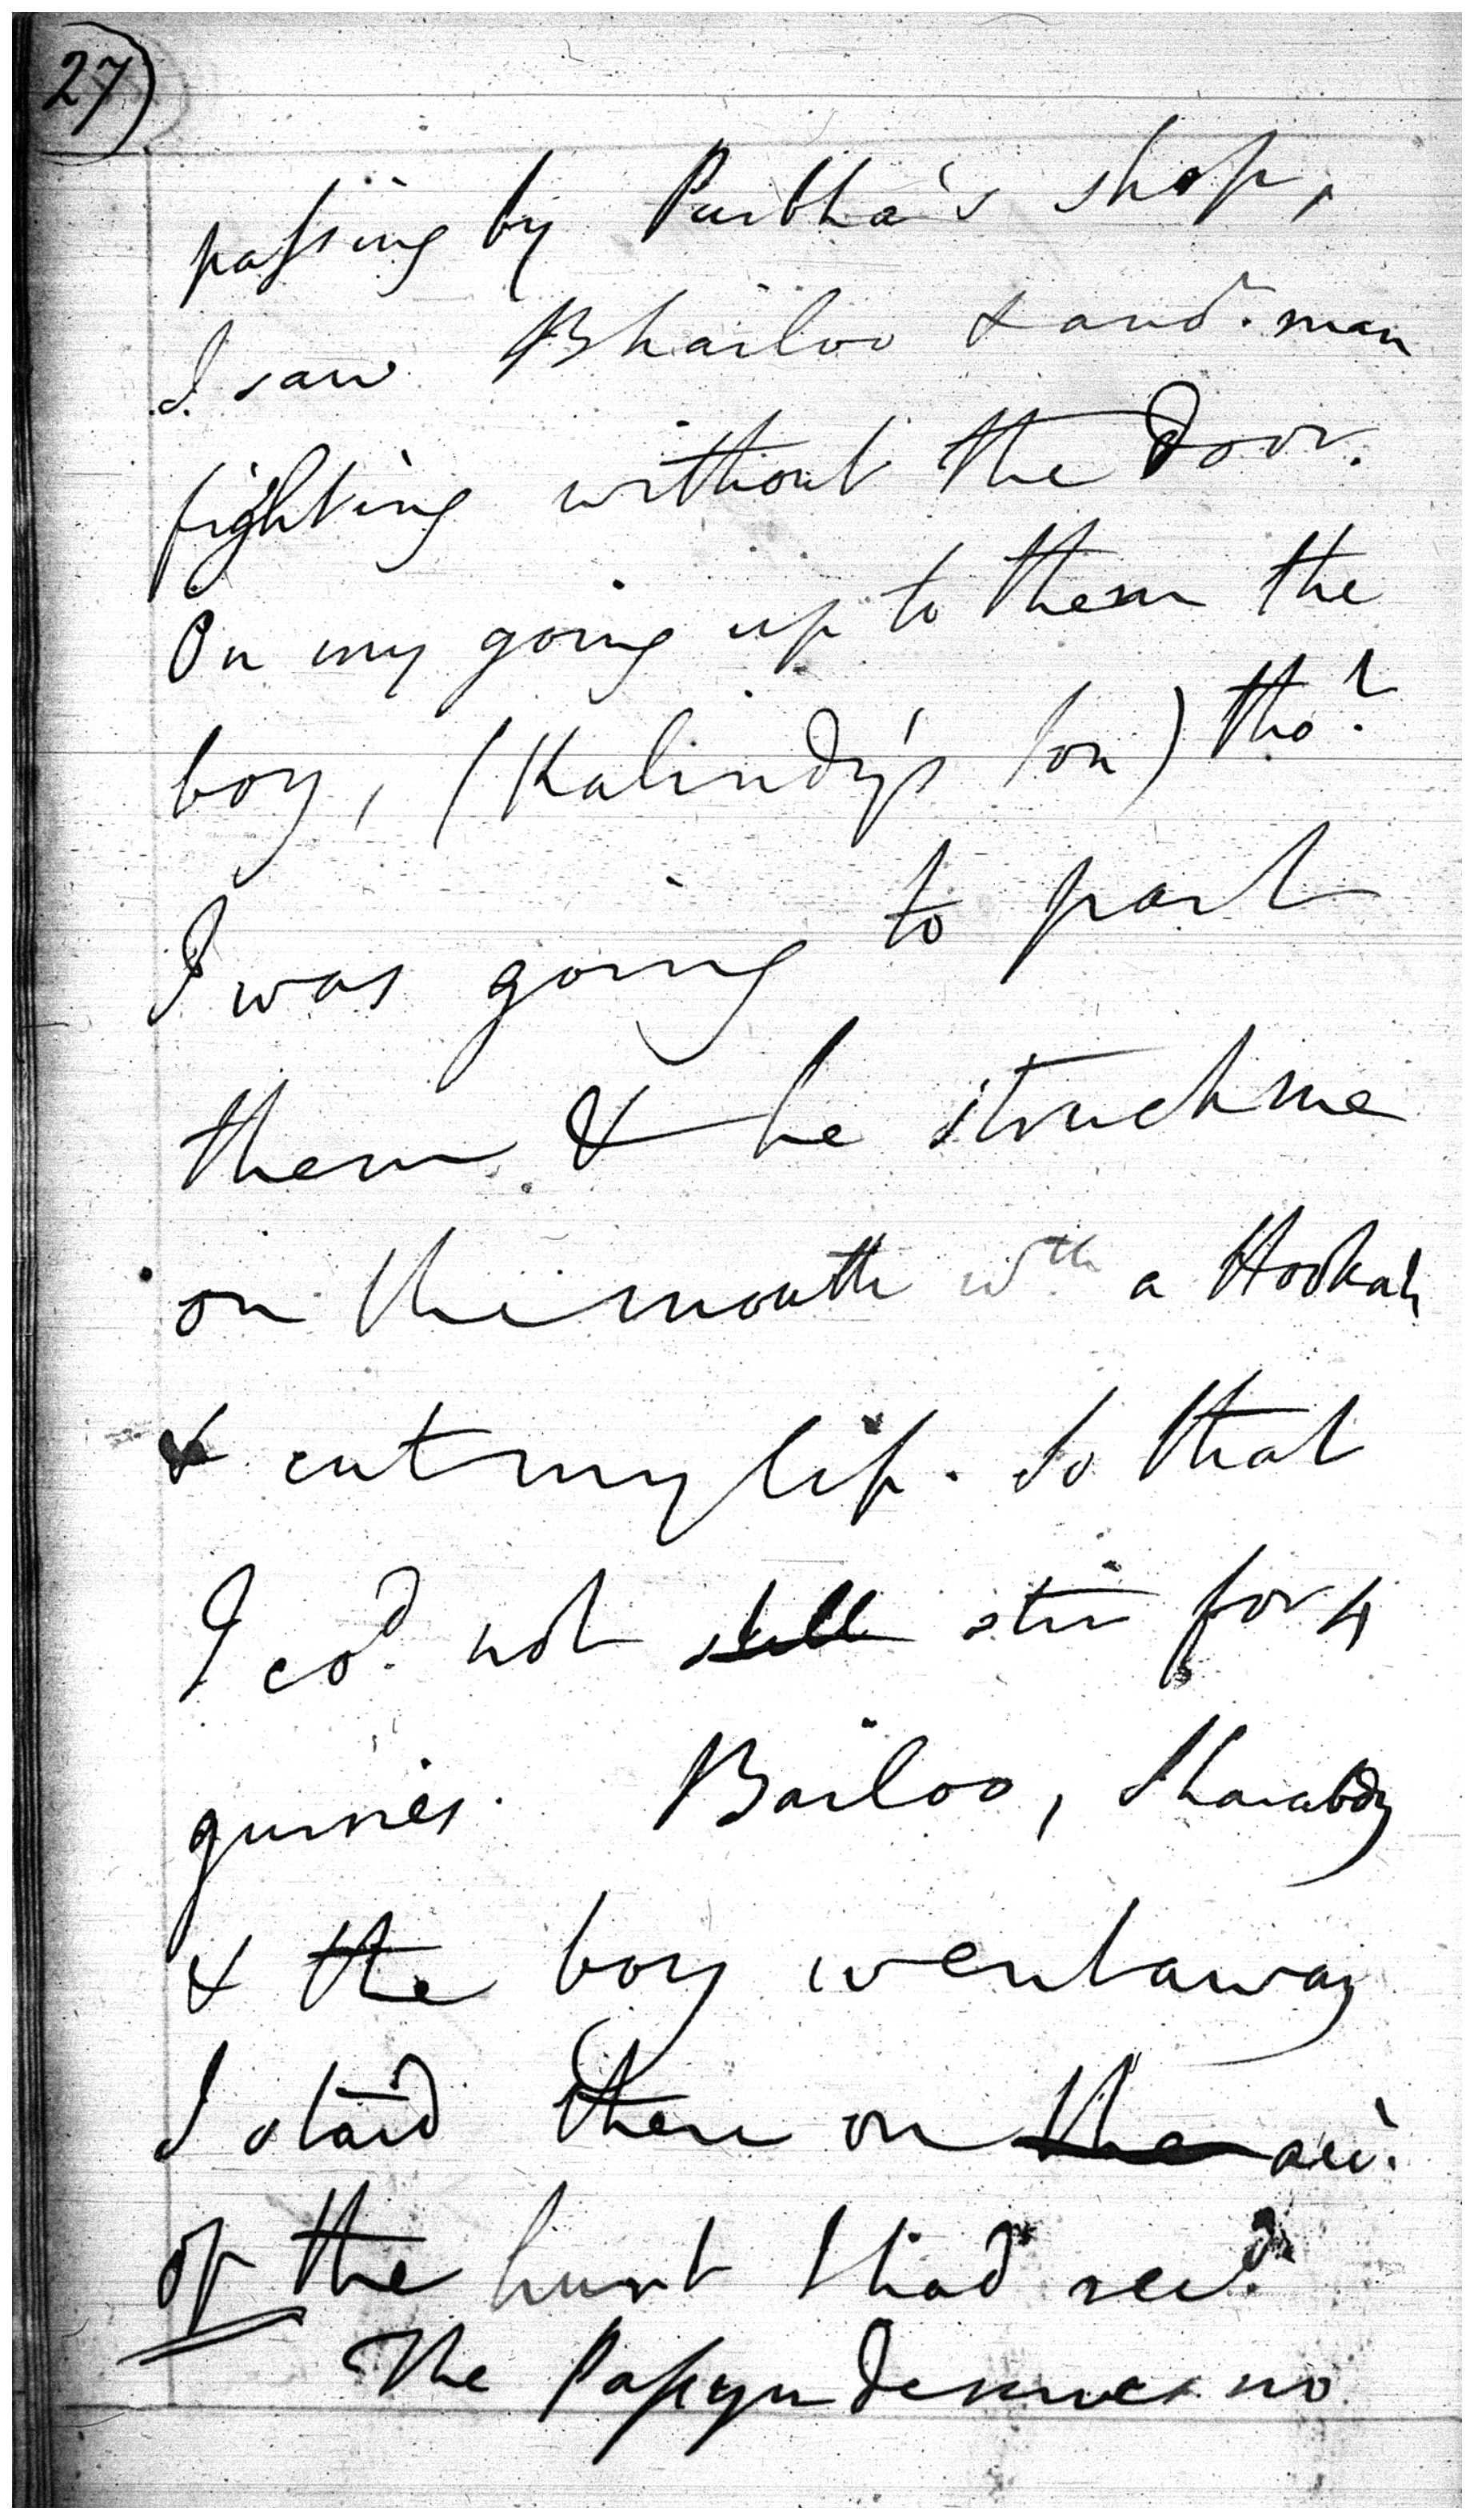 27)
passing by Purbha's shop,
I saw Bhailoo & anor. man
fighting without the door.
On my going up to them the
boy, (Kalindy's son) thot
I was going to part
them & he struck me
on the mouth wth a Hookah
& cut my lip. So that
I cod. not still stir for 4
gurries. Bailoo,
& the boy went away
I staid there on the acc.
of the hurt I had recd.
The deserves no